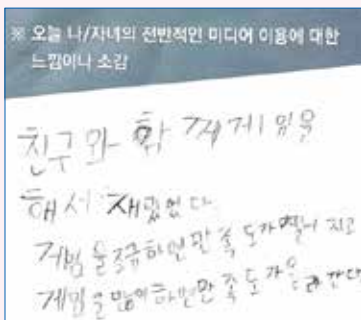 ※ 오늘 나/자녀의 전반적인 미디어 이용에 대한
느낌이나 소감
친구와 게임을
해서 재밌었다
게임을 조금하면 만족도가 떨어지고
게임을 많이하면 만족도가 올라간다